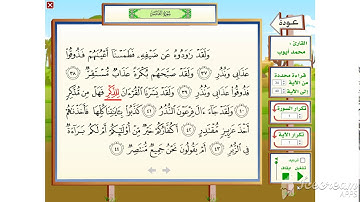 سُورَةُ القَمَرِ
وَلَقَدْ رَاوَدُوهُ عَن ضَيْفِهِ فَطَمَسْنَا أَعْيُنَهُمْ فَذُوقُوا
عَذَابِي وَنُذُرِ ٣٧ وَلَقَدْ صَبَّحَهُم بُكْرَةً عَذَابٌ مُّسْتَقِرٌّ ٣٨
فَذُوقُوا عَذَابِي وَنُذُرِ ٣٩ وَلَقَدْ يَسَّرْنَا الْقُرْآنَ لِلذِّكْرِ فَهَلْ مِن مُّدَّكِرٍ
٤٠ وَلَقَدْ جَاءَ آلَ فِرْعَوْنَ النُّذُرُ ٤١ كَذَّبُوا بِآيَاتِنَا كُلِّهَا فَأَخَذْنَاهُمْ
أَخْذَ عَزِيزٍ مُّقْتَدِرٍ ٤٢ أَكُفَّارُكُمْ خَيْرٌ مِّنْ أُولَئِكُمْ أَمْ لَكُم بَرَاءَةٌ
فِي الزُّبُرِ ٤٣ أَمْ يَقُولُونَ نَحْنُ جَمِيعٌ مُّنتَصِرٌ ٤٤
عـودة
القارئ :
محمد أيوب
قراءة محددة
من الآية
إلى الآية
تكرار السورة
تكرار الآية
IceCream
APPS